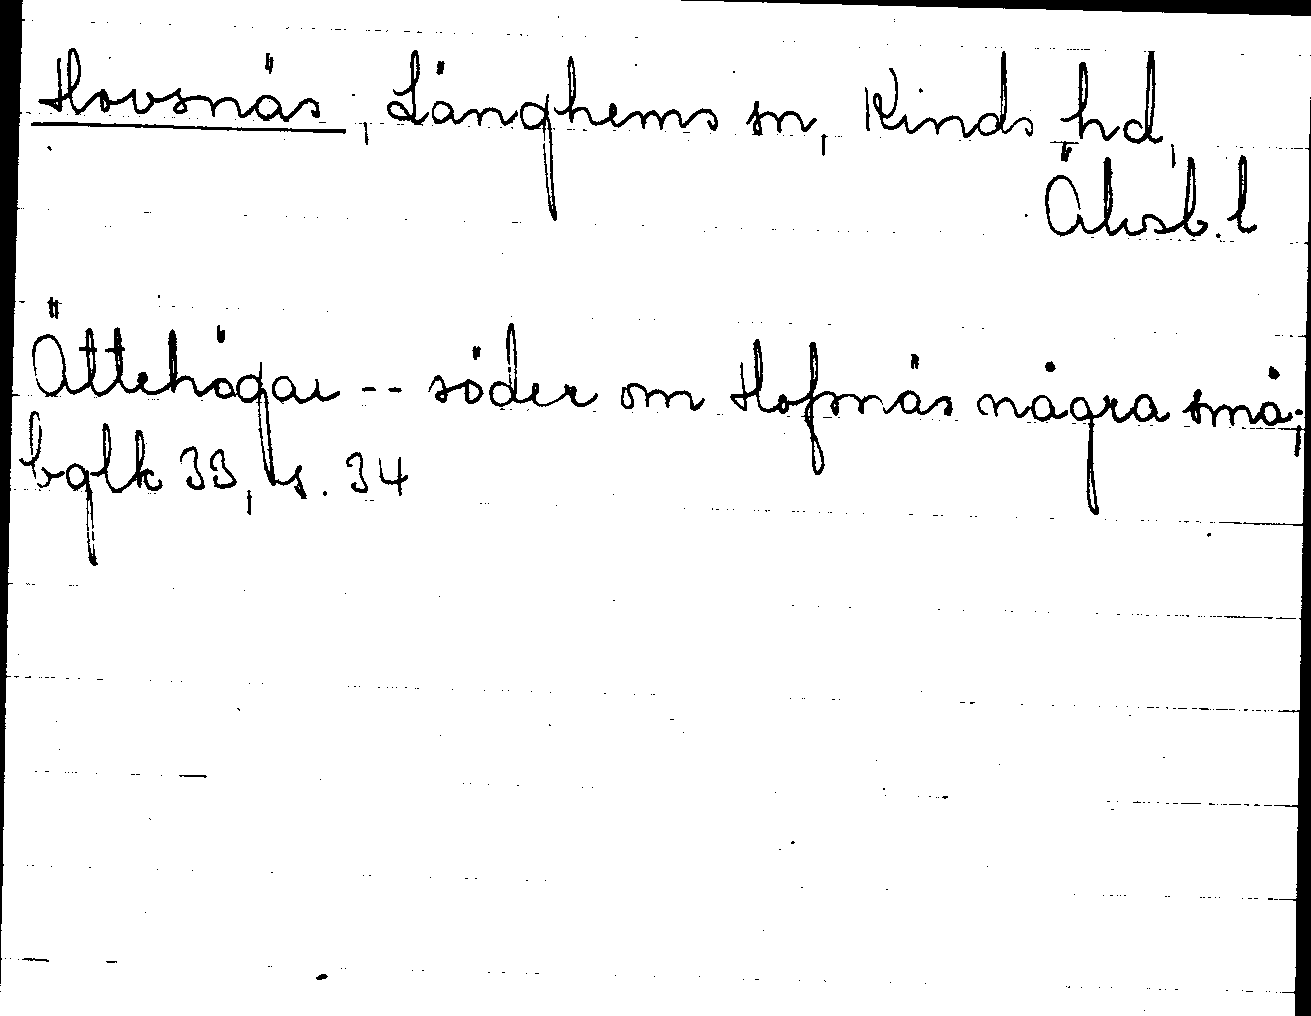 Hovsnäs, Länghems sn, Kinds hd,
Älvsb. l
Ättehögar -- söder om Hofsnäs några små;
bglk 33, s. 34